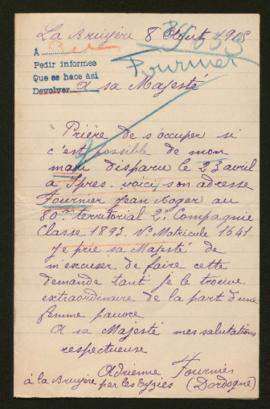 La Bruyère 8 Août 1915
35653
A
Pedir informes
Que se hace asi
Devolver
Fournier
A sa Majesté
Prière de s'occuper si
c'est possible de mon
mari disparu le 23 avril
à Ypres. voici son adresse
Fournier Jean Roger au
80e territorial 2e Compagnie
Classe 1893. No Matricule 1641
Je prie sa Majesté de
m'excuser de faire cette
demande tant je le trouve
extraordinaire de la part d'une
femme pauvre
A sa Majesté mes salutations
respectueuse
Adrienne Fournier
à la Bruyère par les Eyzies (Dordogne)